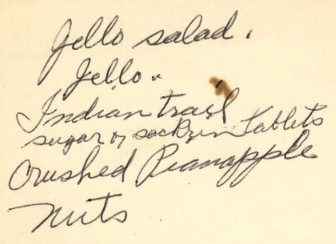 Jello salad.
Jello.
Indian trail
sugar or sackrin Tablets
Crushed Pieanapple
Nuts